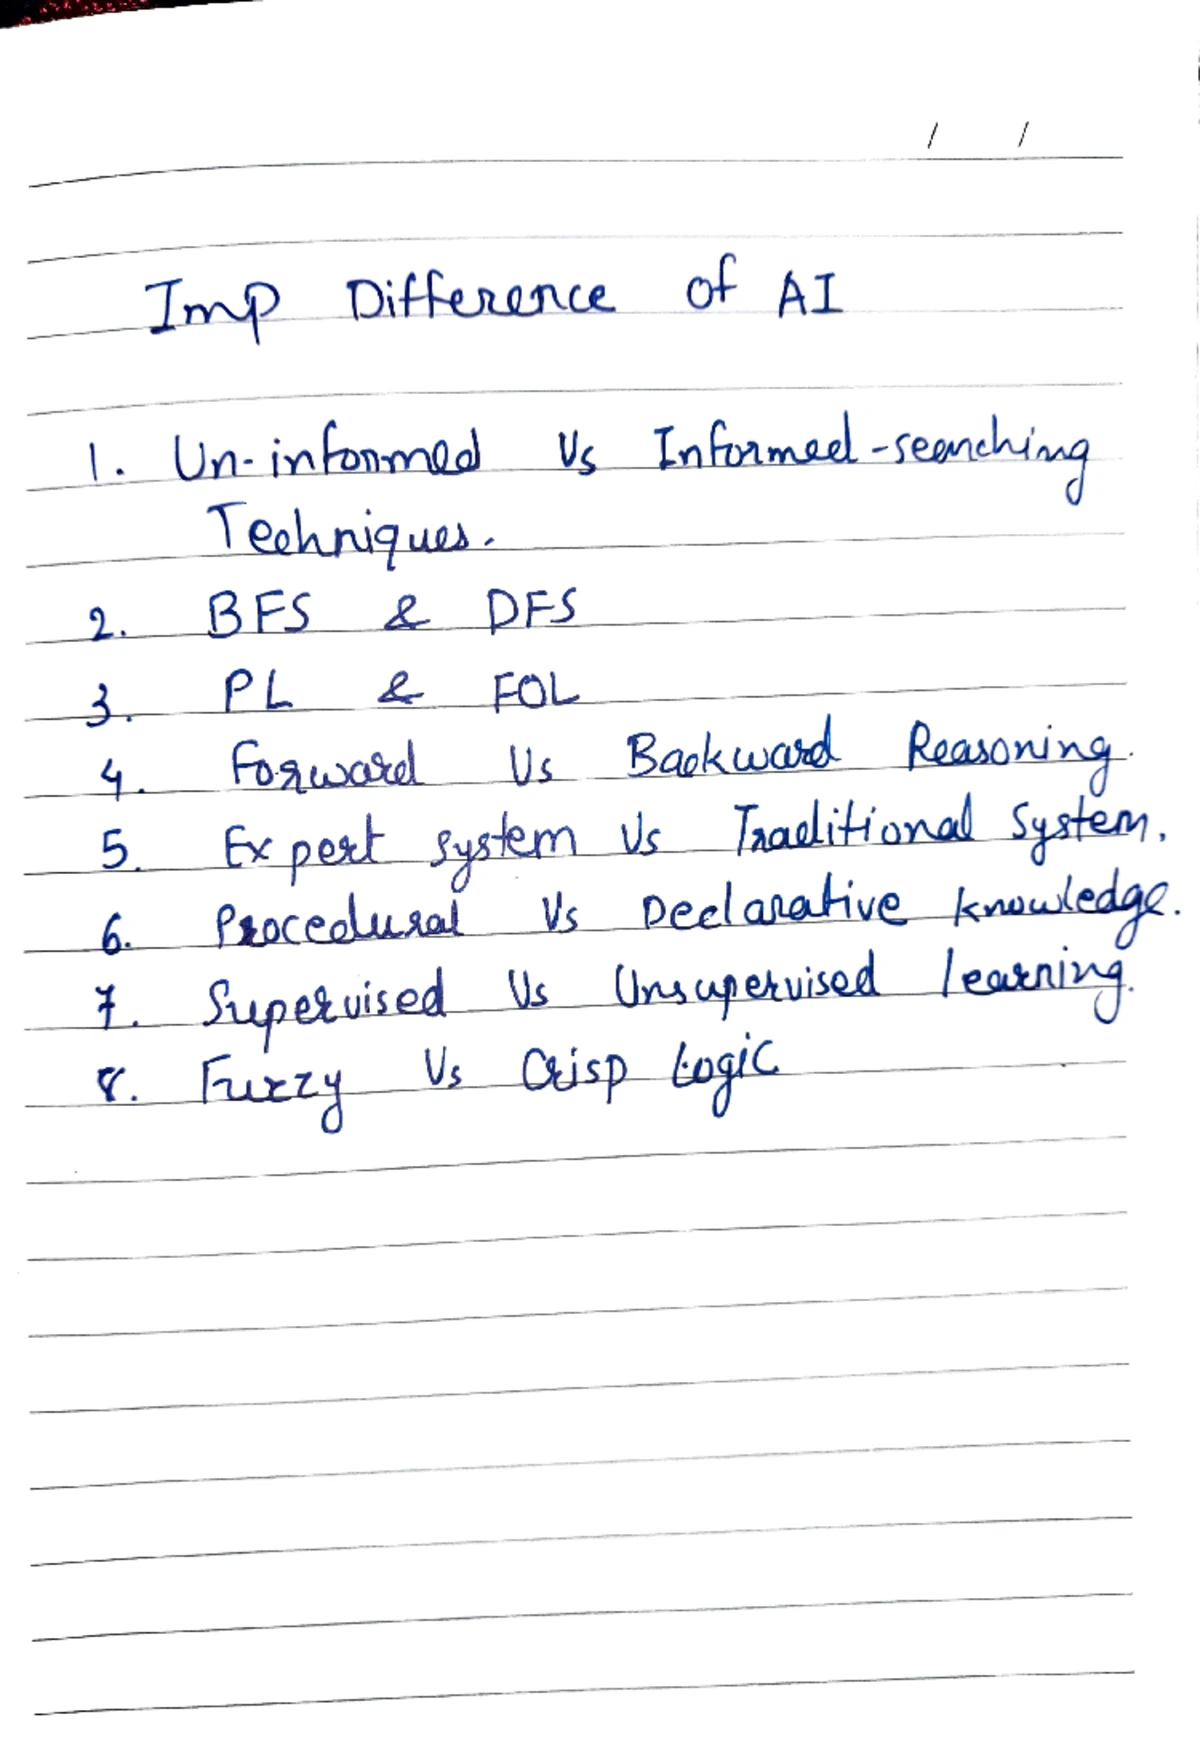 / /
Imp Difference of AI
1. Un-informed Vs Informed-searching
Techniques.
2. BFS & DFS
3. PL & FOL
4. Forward Vs Backward Reasoning.
5. Expert system Vs Traditional System.
6. Procedural Vs Declarative knowledge.
7. Supervised Vs Unsupervised learning.
8. Fuzzy Vs Crisp Logic